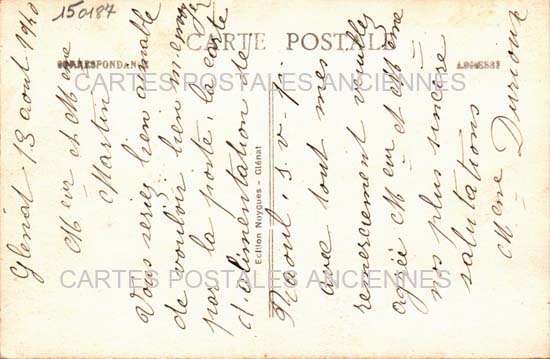 150187
CARTE POSTALE
CORRESPONDANCE
ADRESSE
CARTES POSTALES ANCIENNES
CARTES POSTALES ANCIENNES
Edition Noygues - Glénat
Glénat 13 août 1940
Mr et Mme
Martin
Vous seriez bien aimable
de vouloir bien m'envoyez
par la poste, la carte
d'alimentation de
Raoul, s.v.p.
avec tout mes
remerciement veuillez
agrée Mr et Mme
nos plus sincère
salutations
Mme Durioux